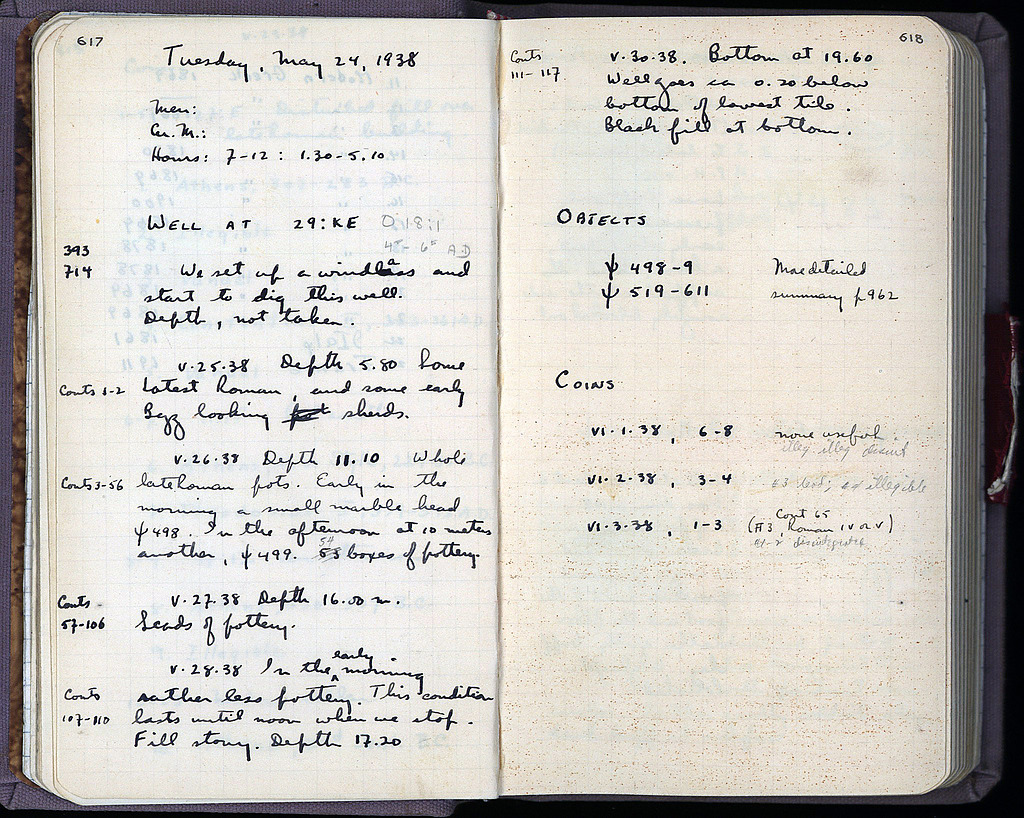 617
Tuesday, May 24, 1938
Men:
Gr. M.:
Hours: 7-12 : 1.30-5.10
WELL AT 29:KE O:18:1
4th - 6th A.D
393
714
We set up a windlass and
start to dig this well.
Depth, not taken.
V.25.38 Depth 5.80 Some
Conts 1-2 Latest Roman, and some early
Byz looking sherds.
V.26.38 Depth 11.10 Whole
Conts 3-56 late Roman pots. Early in the
morning a small marble head
ψ 498. In the afternoon at 10 meters
another, ψ 499. 54 boxes of pottery.
Conts V.27.38 Depth 16.00 m.
57-106 Scads of pottery.
V.28.38 In the early morning
Conts rather less pottery. This condition
107-110 lasts until noon when we stop.
Fill stony. Depth 17.20
618
Conts V.30.38. Bottom at 19.60
111-117 Well goes ca 0.20 below
bottom of lowest tile.
Black fill at bottom.
OBJECTS
ψ 498-9 More detailed
ψ 519-611 summary p. 962
COINS
VI.1.38, 6-8 none useful.
illeg illeg disint
VI.2.38, 3-4 #3 illegible
Cont 65
VI.3.38, 1-3 (#3, Roman IV or V)
#1-2 disintegrated